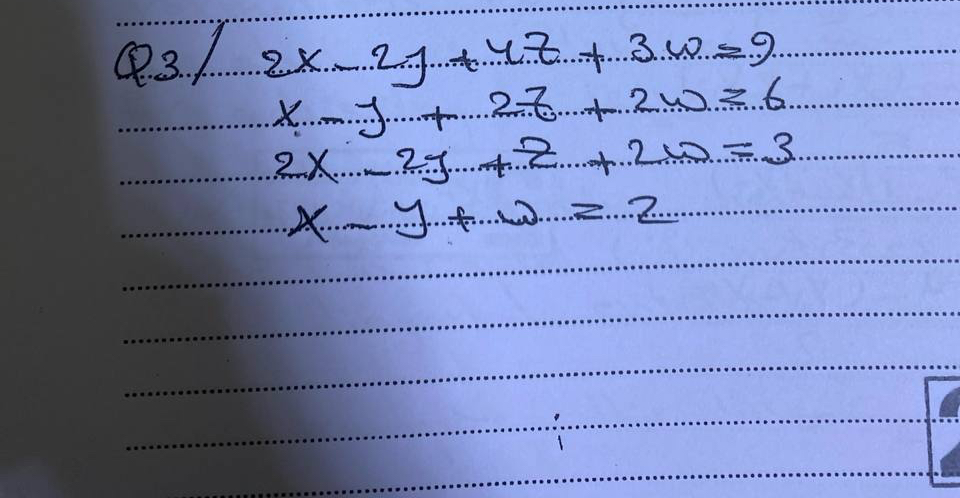 Q3/ 2x - 2y + 4z + 3w = 9
x - y + 2z + 2w = 6
2x - 2y + z + 2w = 3
x - y + w = 2
2